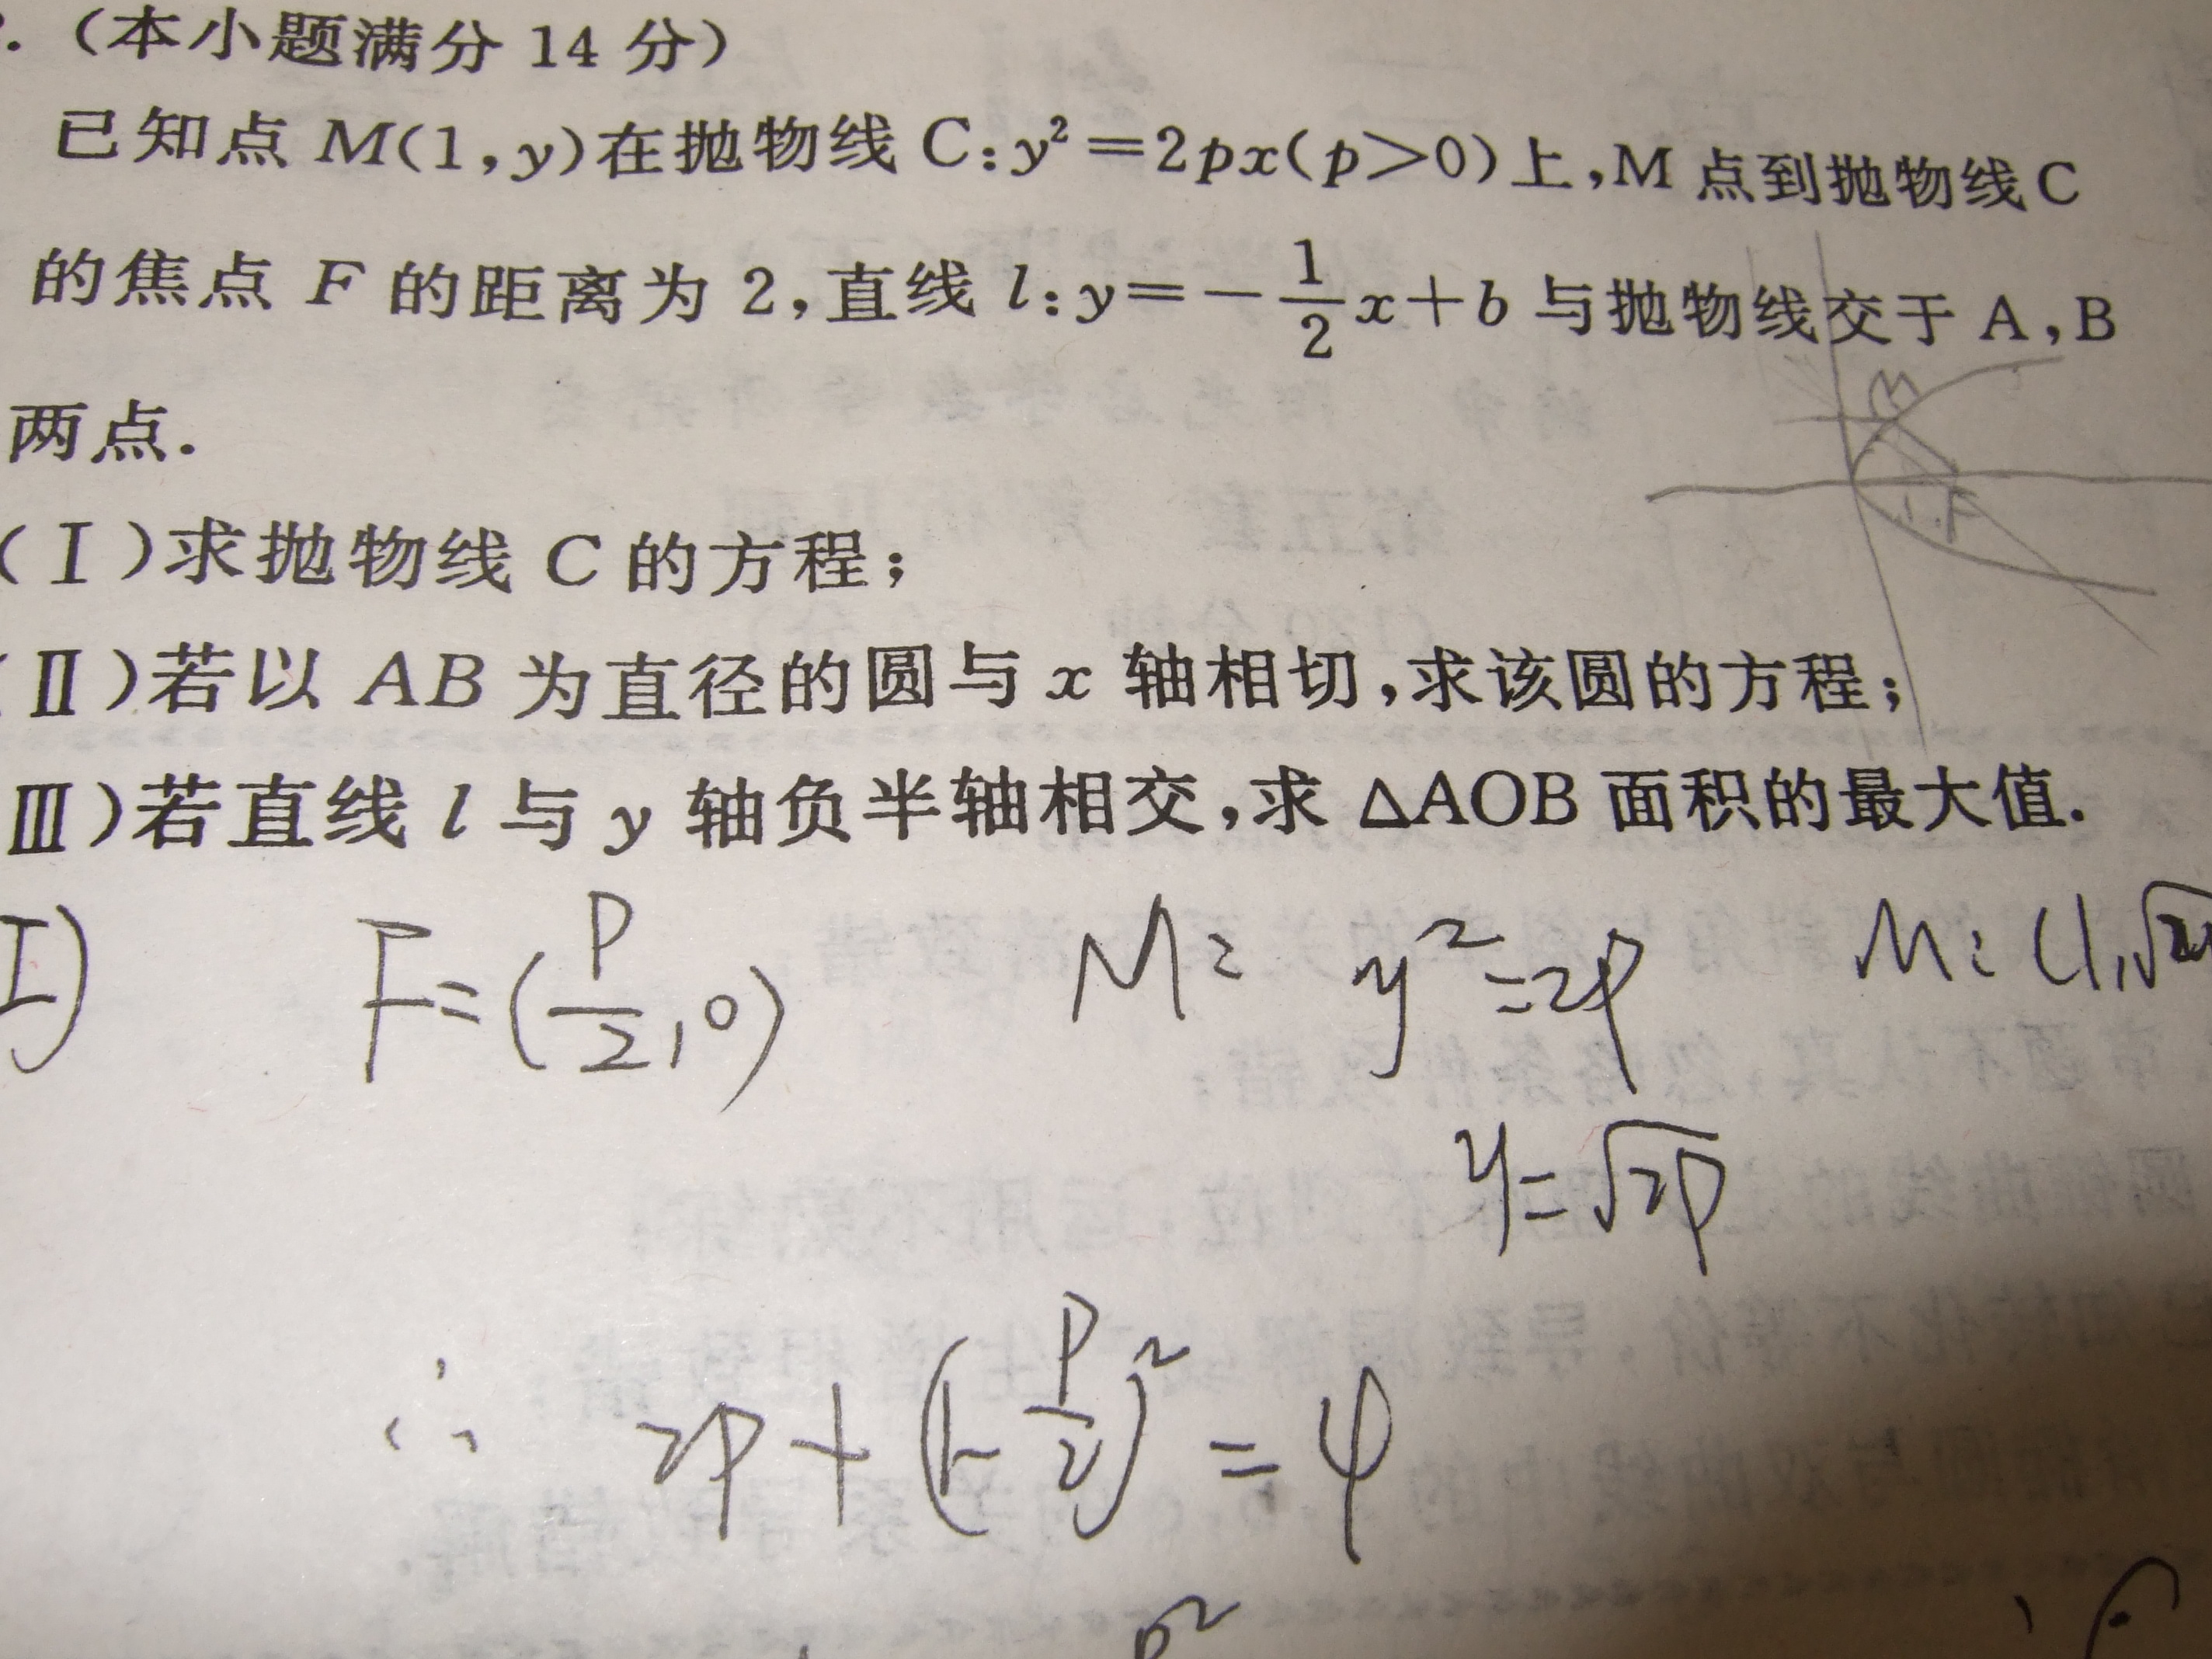 .(本小题满分 14 分)
已知点 M(1,y)在抛物线 C:y²=2px(p>0)上,M 点到抛物线C
的焦点 F 的距离为 2,直线 l:y=-\frac{1}{2}x+b 与抛物线交于 A,B
两点.
M
F
(Ⅰ)求抛物线 C 的方程;
(Ⅱ)若以 AB 为直径的圆与 x 轴相切,求该圆的方程;
Ⅲ)若直线 l 与 y 轴负半轴相交,求 △AOB 面积的最大值.
I) F=(\frac{P}{2},0) M: y²=2P M:(1,√
y=√2P
∴ 2P+(1-\frac{P}{2})²=4
P²